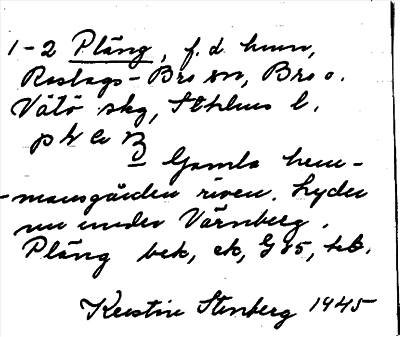 1-2 Pläng, f. d. hmn,
Roslags-Bro sn, Bro o.
Vätö skg, Sthlms l.
B
Gamla hem-
-mansgården riven. Lyder
nu under Värnberg.
Pläng bek, ek, G 85, hb.
Kerstin Stenberg 1945